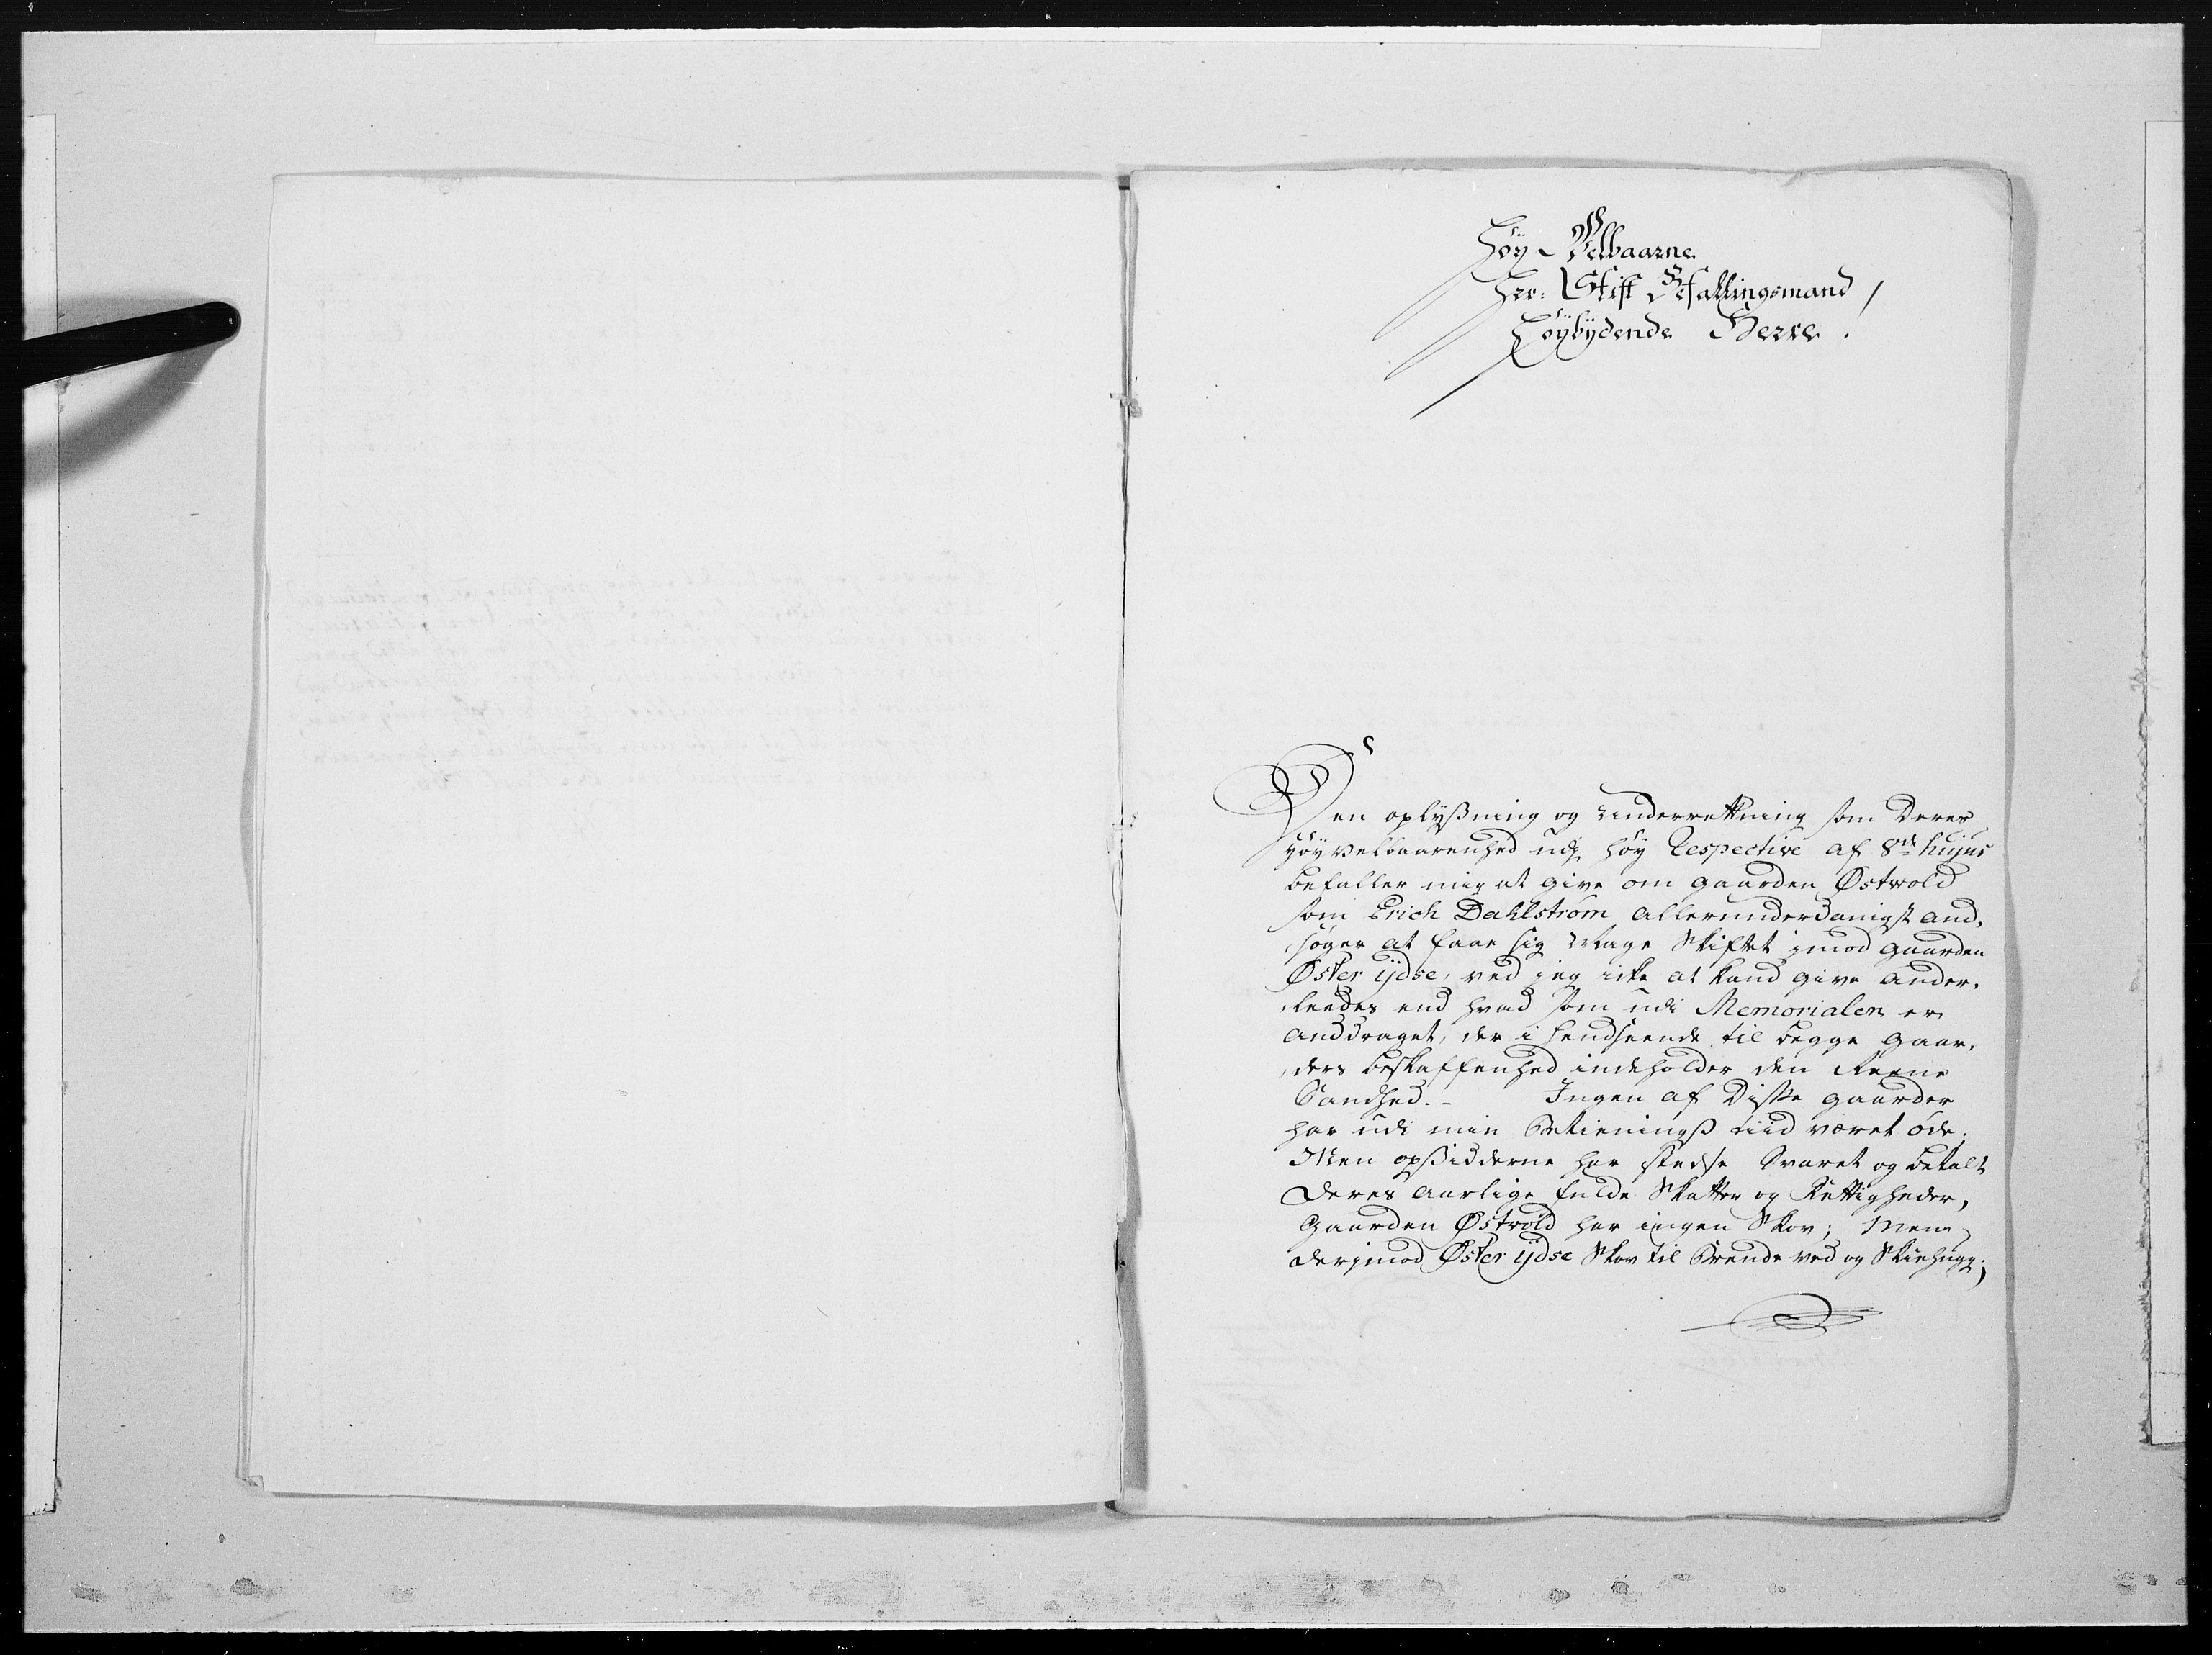 Høy-Velbaarne
Hr: Stift Befallingsmand
Høybydende Herre.
Den oplysning og underretning som Deres
Høy velbaarenhed udj høy Respective af 8de hujus
befaller mig at give om gaarden Østwold
som Erich Dahlstrøm allerunderdanigst and,
søger at faae sig Mage Skiftet imod gaarden
Øster ijdse, ved jeg icke at kand give ander,
leedes end hvad som udi Memorialen er
anddraget, der i henseende til begge gaar,
ders beskaffenhed indeholder den Reene
Sandhed. - Ingen af Disse gaarder
har udi min Betienings tiid været øde;
Men opsidderne har stedse Svaret og betalt
deres aarlige fulde Skatter og Rettigheder,
Gaarden Østvold har ingen Skov; Men
derjmod Øster ijdse Skov til Brende ved og Skiehugg;